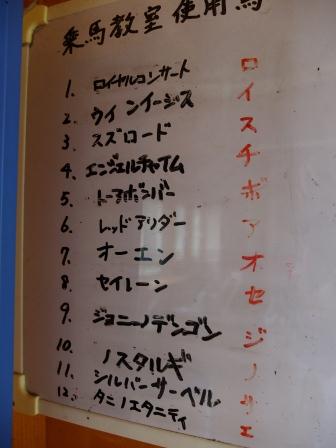 乗馬教室使用馬
1. ロイヤルコンサート ロ
2. ウインイージス イ
3. スズロード ス
4. エンジェルチャイム チ
5. トーアボンバー ボ
6. レッドアリダー ア
7. オーエン オ
8. セイレーン セ
9. ジョニーノデンゴン ジ
10. ノスタルギ ノ
11. シルバーサーベル
12. タニノエタニティ エ